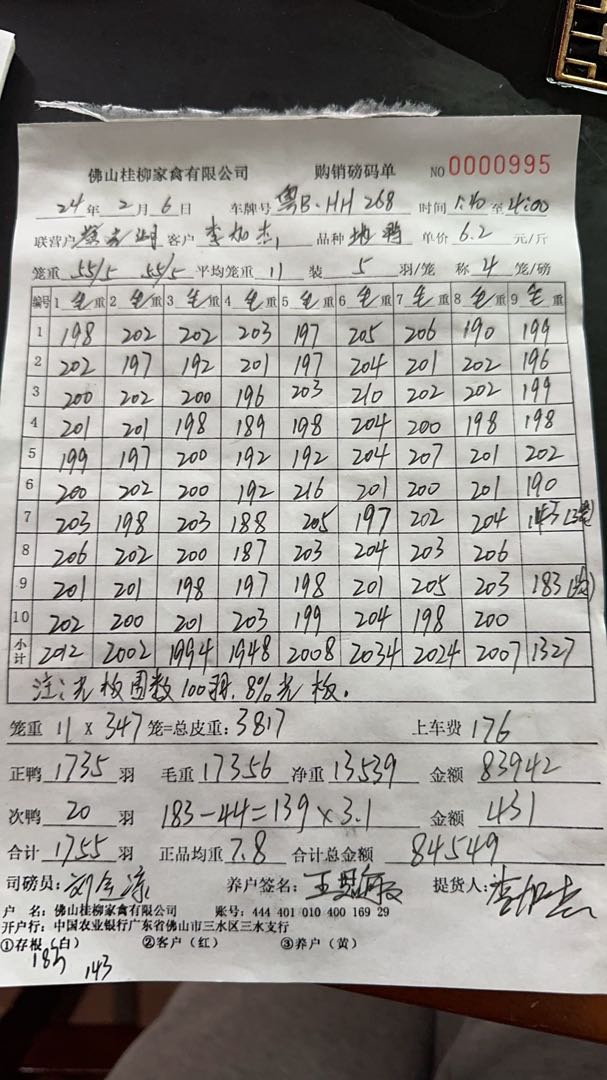 佛山桂柳家禽有限公司 购销磅码单 NO 0000995
24年2月6日 车牌号 粤B·HH268 时间 1:40至4:00
联营户 客户 李加杰 品种 单价 6.2 元/斤
笼重 55/5 55/5 平均笼重 11 装 5 羽/笼 称 4 笼/磅
编号 1毛重 2毛重 3毛重 4毛重 5毛重 6毛重 7毛重 8毛重 9毛重
1 198 202 202 203 197 205 206 190 199
2 202 197 192 201 197 204 201 202 196
3 200 202 200 196 203 210 202 202 199
4 201 201 198 189 198 204 200 198 198
5 199 197 200 192 192 204 207 201 202
6 200 202 200 192 216 201 200 201 190
7 203 198 203 188 205 197 202 204 143
8 206 202 200 187 203 204 203 206
9 201 201 198 197 198 201 205 203 183
10 202 200 201 203 199 204 198 200
小计 2012 2002 1994 1948 2008 2034 2024 2007 1327
注:光板围数100羽,8%光板.
笼重 11 x 347 笼=总皮重:3817 上车费 176
正鸭 1735 羽 毛重 17356 净重 13539 金额 83942
次鸭 20 羽 183-44=139x3.1 金额 431
合计 1755 羽 正品均重 7.8 合计总金额 84549
司磅员: 养户签名: 提货人:李加杰
户 名:佛山桂柳家禽有限公司 账号:444 401 010 400 169 29
开户行:中国农业银行广东省佛山市三水区三水支行
①存根(白) ②客户(红) ③养户(黄)
183 143